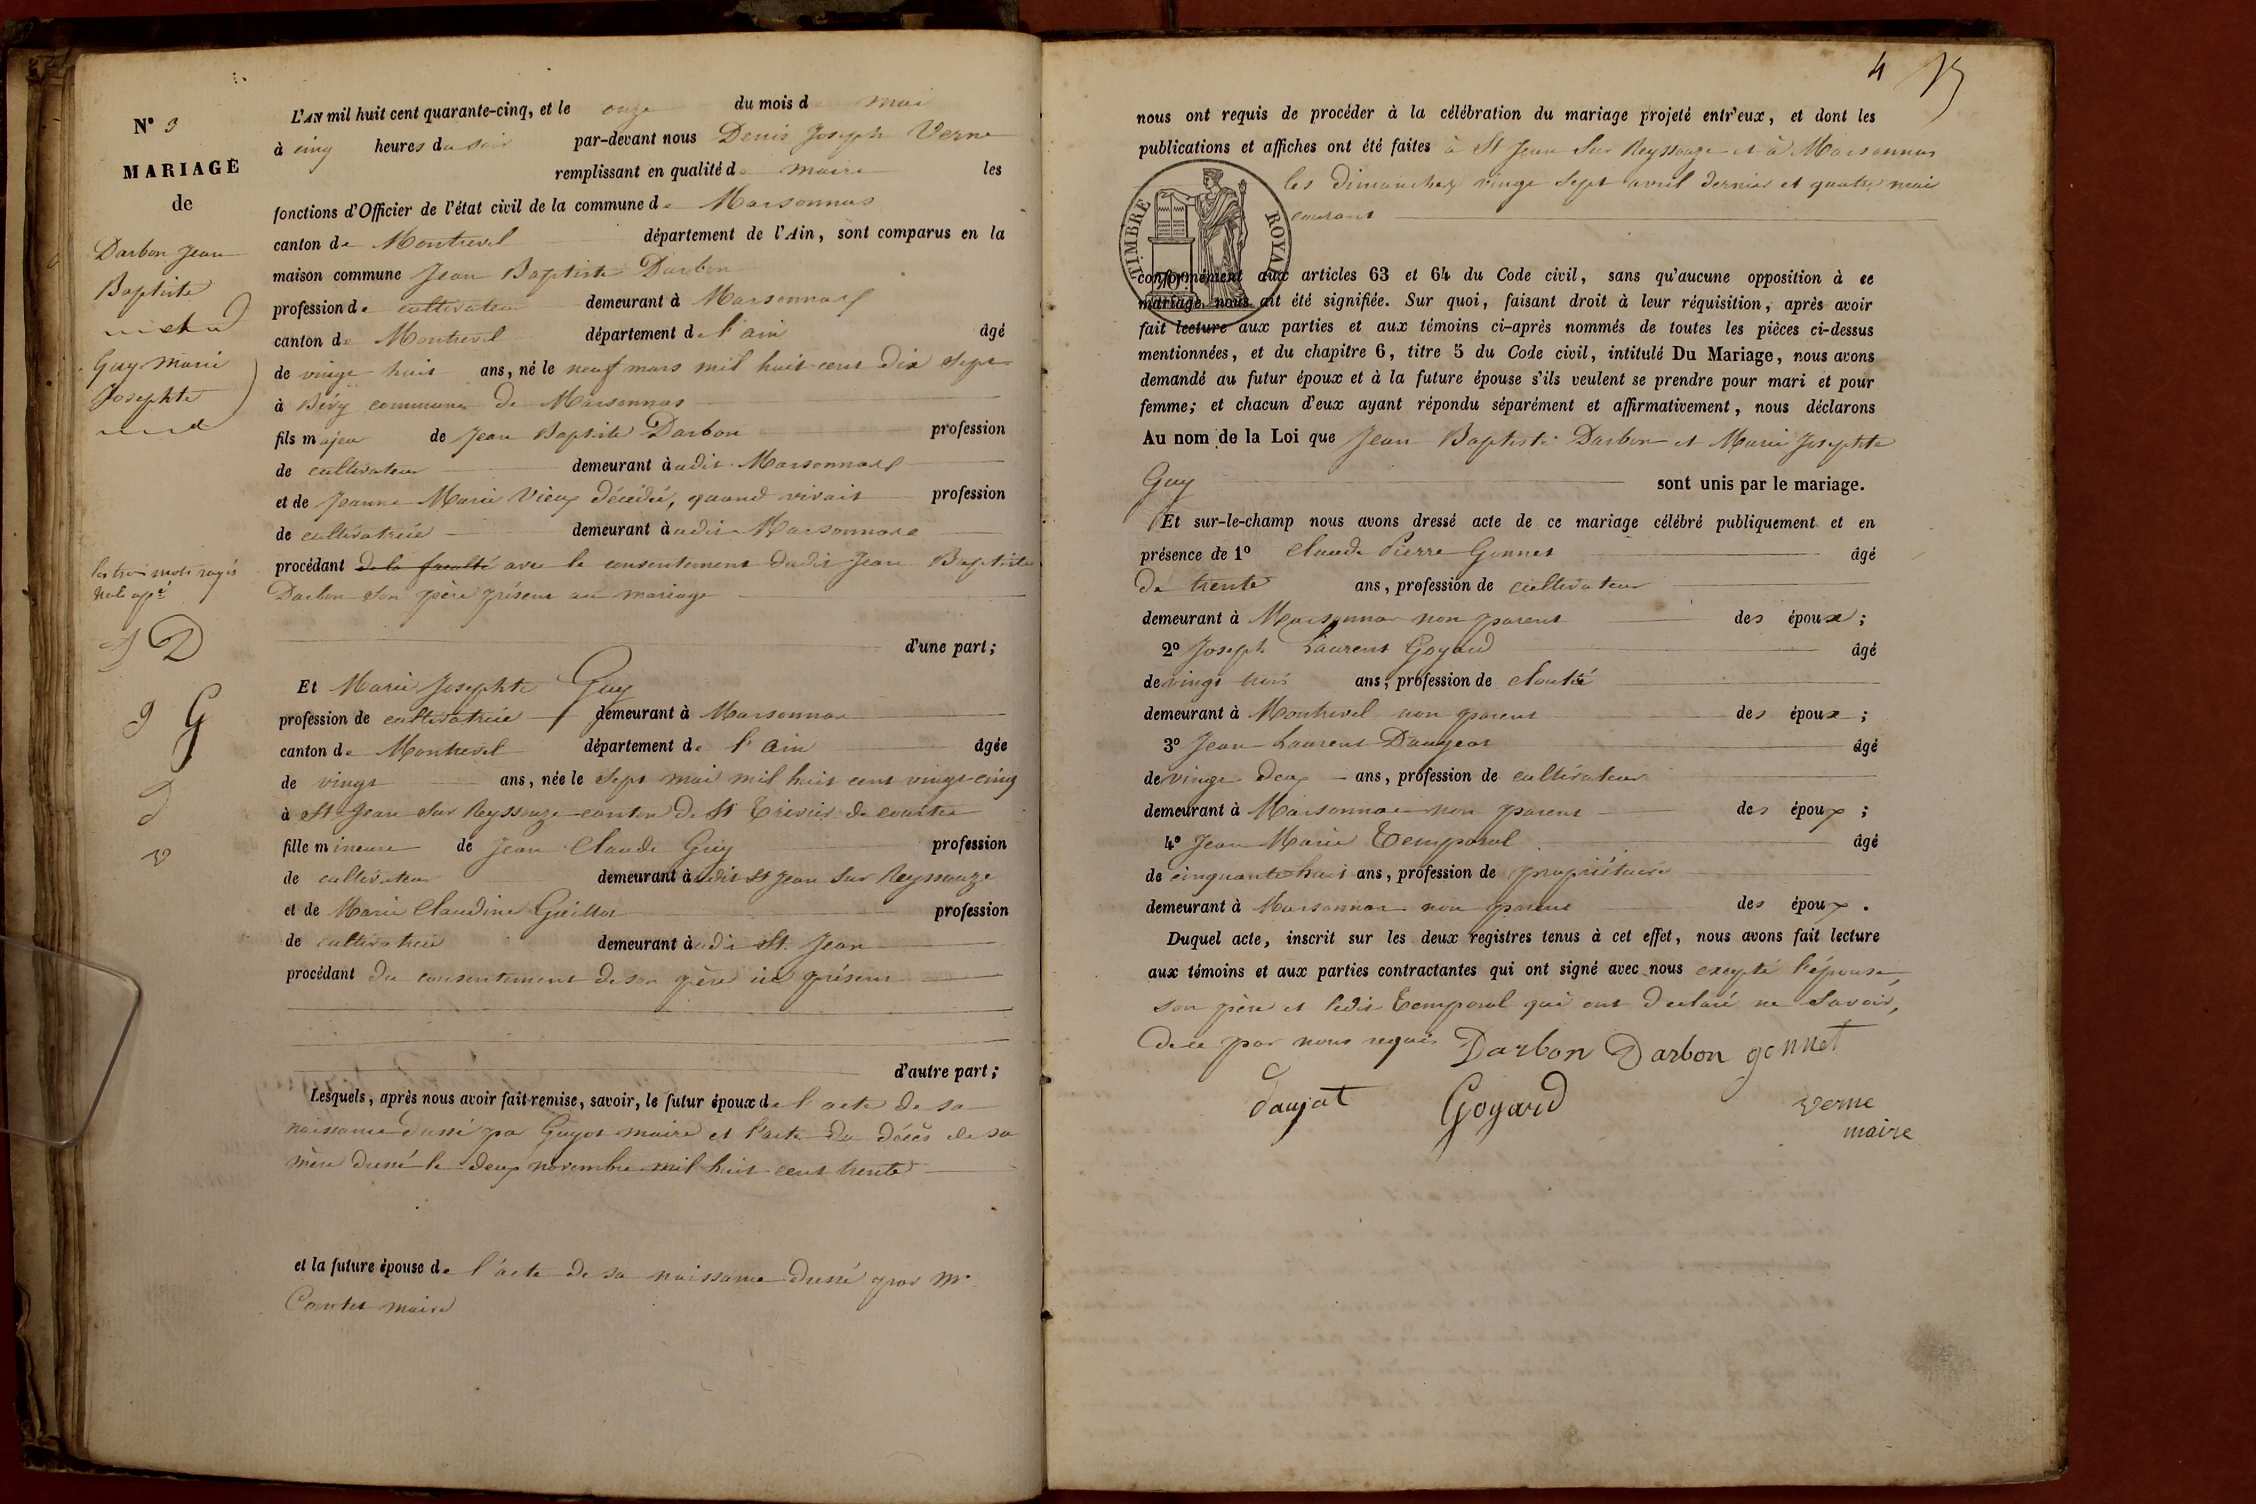 N° 3
MARIAGE
de
Darbon Jean
Baptiste
et
Guy Marie
Josephte
les trois mots rayés
nuls app.é
J D
J G
d
v
L'AN mil huit cent quarante-cinq, et le onze du mois d mai
à cinq heures du soir par-devant nous Denis Joseph Verne
remplissant en qualité de maire les
fonctions d'Officier de l'état civil de la commune de Marsonnas
canton de Montrevel département de l'Ain, sont comparus en la
maison commune Jean Baptiste Darbon
profession de cultivateur demeurant à Marsonnas
canton de Montrevel département de l'ain âgé
de vingt huit ans, né le neuf mars mil huit cent dix sept
à Bévy commune de Marsonnas
fils majeur de Jean Baptiste Darbon profession
de cultivateur demeurant à udit Marsonnas
et de Jeanne Marie Vieux décédée, quand vivait profession
de cultivatrice demeurant à udit Marsonnas
procédant de la faculté avec le consentement dudit Jean Baptiste
Darbon son père présent au mariage
d'une part;
Et Marie Josephte Guy
profession de cultivatrice demeurant à Marsonnas
canton de Montrevel département de l'ain âgée
de vingt ans, née le sept mai mil huit cent vingt-cinq
à St Jean sur Reyssouze canton de St Trivier de courtes
fille mineure de Jean Claude Guy profession
de cultivateur demeurant à udit St Jean sur Reyssouze
et de Marie Claudine Guillot profession
de cultivatrice demeurant à udit St Jean
procédant du consentement de son père ici présent
d'autre part;
Lesquels, après nous avoir fait remise, savoir, le futur époux de l'acte de sa
naissance dressé par Guyot maire et l'acte du décès de sa
mère dressé le deux novembre mil huit cent trente
et la future épouse de l'acte de sa naissance dressé par Mr
maire
4
nous ont requis de procéder à la célébration du mariage projeté entr'eux, et dont les
publications et affiches ont été faites à St Jean sur Reyssouze et à Marsonnas
les dimanches vingt sept avril dernier et quatre mai
courant
TIMBRE ROYAL
conformément aux articles 63 et 64 du Code civil, sans qu'aucune opposition à ce
mariage nous ait été signifiée. Sur quoi, faisant droit à leur réquisition, après avoir
fait lecture aux parties et aux témoins ci-après nommés de toutes les pièces ci-dessus
mentionnées, et du chapitre 6, titre 5 du Code civil, intitulé Du Mariage, nous avons
demandé au futur époux et à la future épouse s'ils veulent se prendre pour mari et pour
femme; et chacun d'eux ayant répondu séparément et affirmativement, nous déclarons
Au nom de la Loi que Jean Baptiste Darbon et Marie Josephte
Guy sont unis par le mariage.
Et sur-le-champ nous avons dressé acte de ce mariage célébré publiquement et en
présence de 1° Claude Pierre Gonnet âgé
de trente ans, profession de cultivateur
demeurant à Marsonnas non parent des époux;
2° Joseph Laurent Goyard âgé
de vingt trois ans, profession de cloutié
demeurant à Montrevel non parent des époux;
3° Jean Laurent Daujeat âgé
de vingt deux ans, profession de cultivateur
demeurant à Marsonnas non parent des époux;
4° Jean Marie Temporal âgé
de cinquante huit ans, profession de propriétaire
demeurant à Marsonnas non parent des époux.
Duquel acte, inscrit sur les deux registres tenus à cet effet, nous avons fait lecture
aux témoins et aux parties contractantes qui ont signé avec nous excepté l'épouse,
son père et ledit Temporal qui ont déclaré ne savoir,
de ce par nous requis Darbon Darbon gonnet
daujat Goyard verne
maire